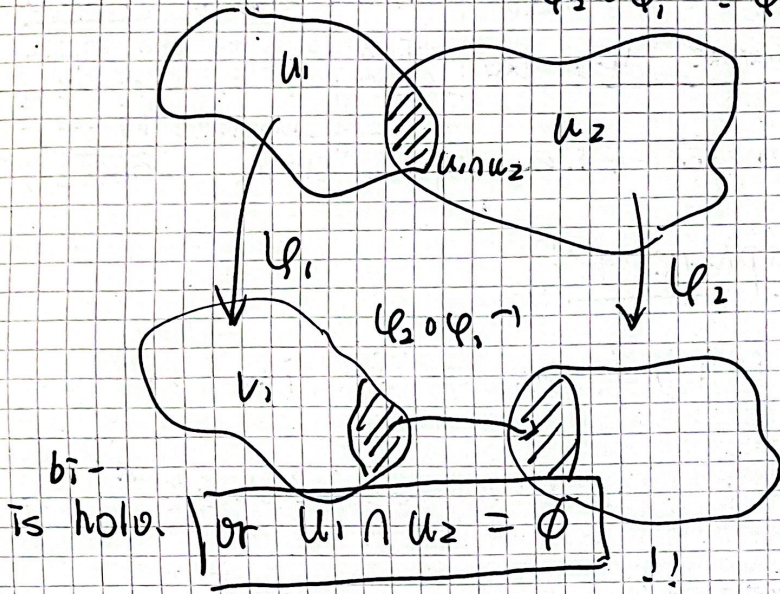 φ₂ ∘ φ₁ = φ
U₁
U₂
U₁∩U₂
φ₁
φ₂
φ₂∘φ₁⁻¹
V₁
bi-
is holo.
or U₁ ∩ U₂ = ∅
!!